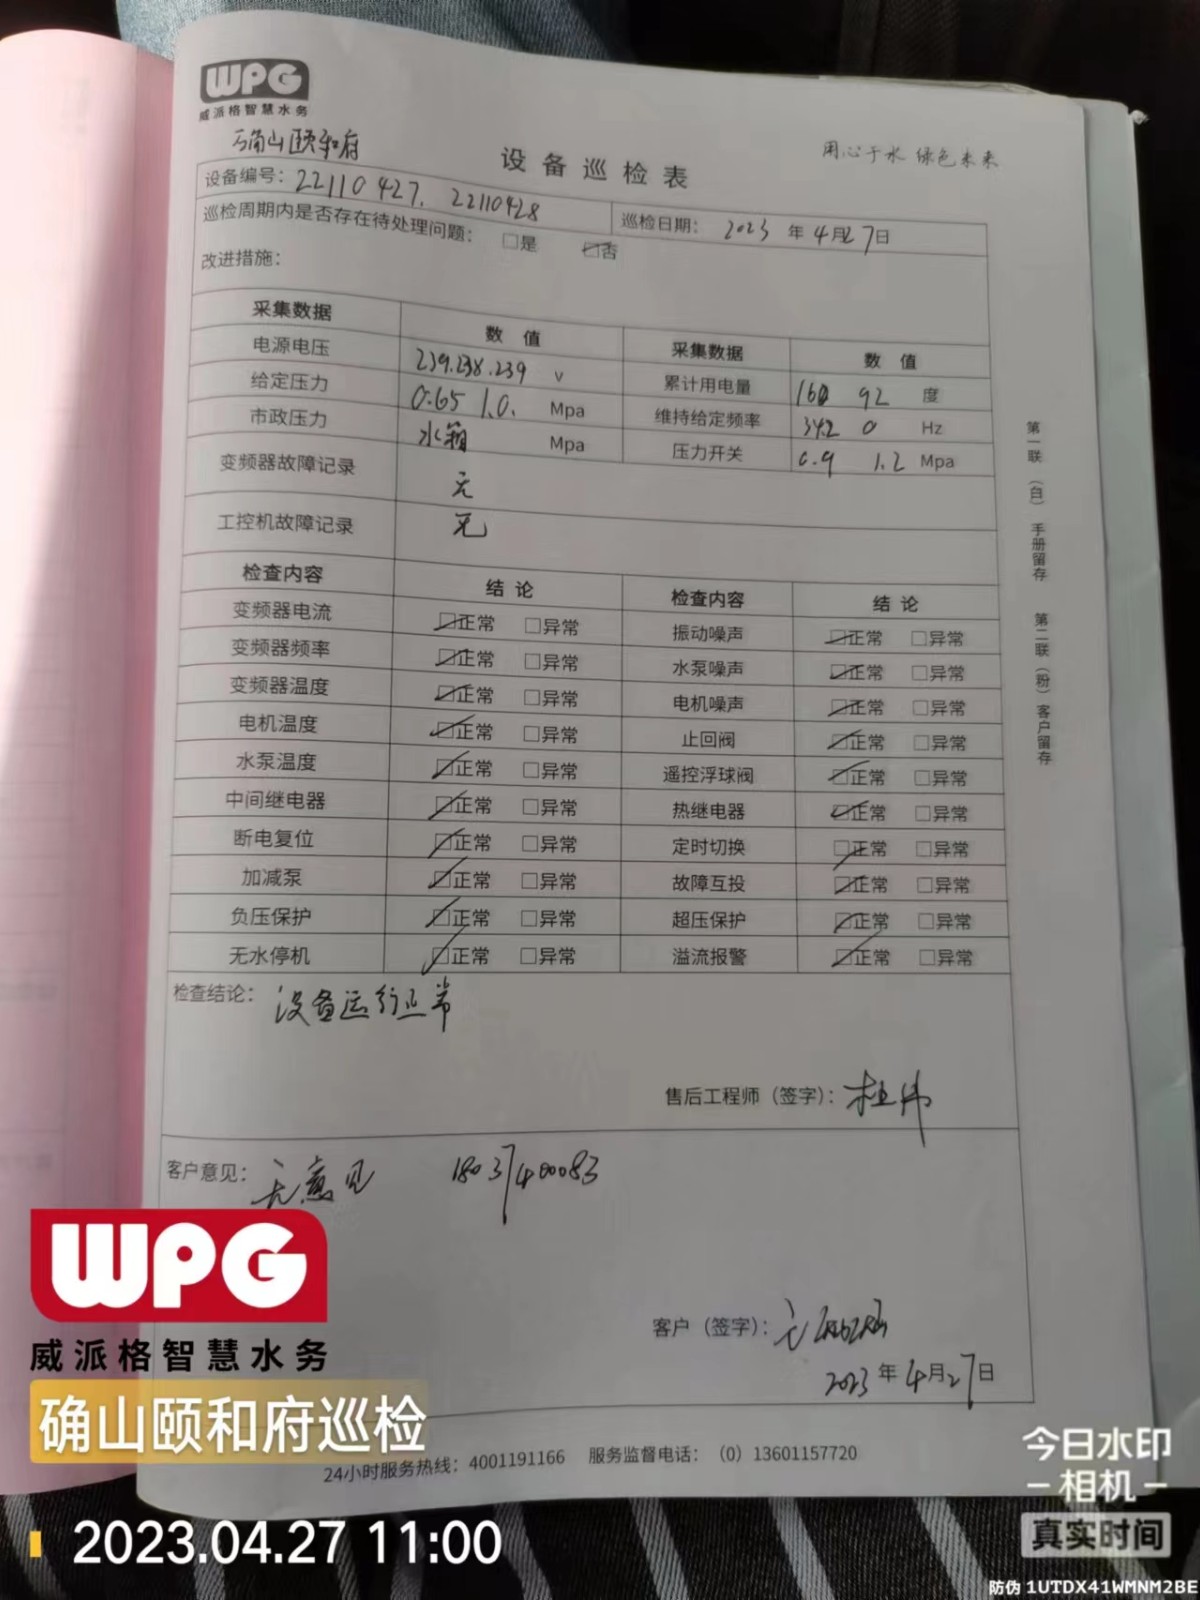 WPG
威派格智慧水务
确山颐和府
设备巡检表
用心于水 绿色未来
设备编号：22110427. 22110428
巡检日期： 2023 年 4月27日
巡检周期内是否存在待处理问题： □是 ☑否
改进措施：
采集数据 数 值 采集数据 数 值
电源电压 239.238.239 V 累计用电量 160 92 度
给定压力 0.65 1.0. Mpa 维持给定频率 34.2 0 Hz
市政压力 水箱 Mpa 压力开关 0.9 1.2 Mpa
变频器故障记录 无
工控机故障记录 无
检查内容 结 论 检查内容 结 论
变频器电流 ☑正常 □异常 振动噪声 ☑正常 □异常
变频器频率 ☑正常 □异常 水泵噪声 ☑正常 □异常
变频器温度 ☑正常 □异常 电机噪声 ☑正常 □异常
电机温度 ☑正常 □异常 止回阀 ☑正常 □异常
水泵温度 ☑正常 □异常 遥控浮球阀 ☑正常 □异常
中间继电器 ☑正常 □异常 热继电器 ☑正常 □异常
断电复位 ☑正常 □异常 定时切换 ☑正常 □异常
加减泵 ☑正常 □异常 故障互投 ☑正常 □异常
负压保护 ☑正常 □异常 超压保护 ☑正常 □异常
无水停机 ☑正常 □异常 溢流报警 ☑正常 □异常
检查结论： 设备运行正常
售后工程师（签字）： 杜伟
客户意见： 无意见 18037400083
客户（签字）：
2023 年 4月27日
24小时服务热线：4001191166 服务监督电话：（0）13601157720
第一联（白）手册留存 第二联（粉）客户留存
WPG
威派格智慧水务
确山颐和府巡检
2023.04.27 11:00
今日水印
相机
真实时间
防伪 1UTDX41WMNM2BE